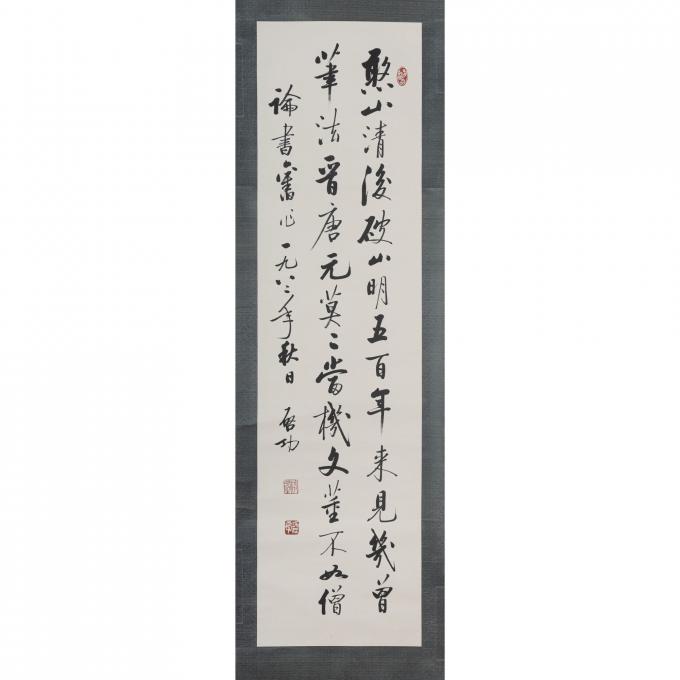 憨山清後破山明五百年来見幾曾
筆法晋唐元莫二當機文董不如僧
論書舊作一九八二年秋日 启功